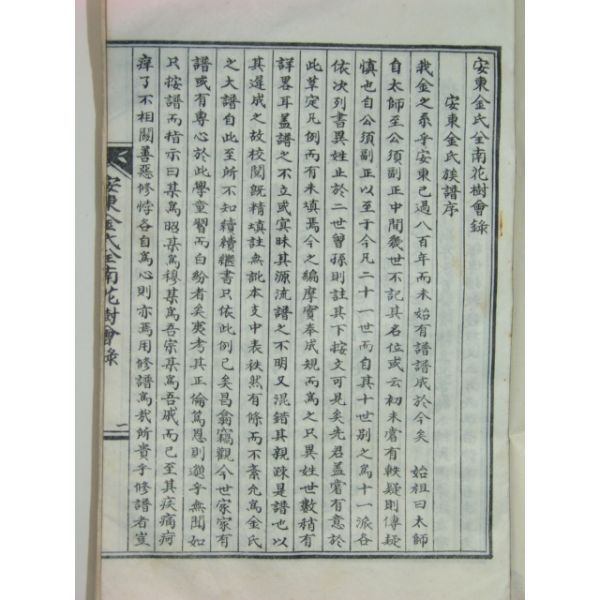 安東金氏全南花樹會錄
安東金氏族譜序
我金之系乎安東已過八百年而未始有譜譜成於今矣 始祖曰太師
自太師至公須副正中間幾世不記其名位或云初未嘗有軼疑則傳疑
慎也自公須副正以至于今凡二十一世而自其十世別之爲十一派各
依次列書異姓止於二世曾孫則註其下按文可見矣先君盖嘗有意於
此草定凡例而有未塡焉今之編摩實奉成規而爲之只異姓世數稍有
詳畧耳盖譜之不立或寘昧其源流譜之不明又混錯其親疎是譜也以
其遷成之故校閱旣精塡註無訛本支中表秩然有條而不紊允爲金氏
之大譜自此至所不知續續繼書只依此例已矣昌翕竊觀今世家家有
譜或有專心於此學童習而白紛者矣夷考其正倫篤恩則邈乎無聞如
只按譜而指示曰某爲昭某爲穆某爲吾宗某爲吾戚而已至其疾痛疴
痒了不相關善惡修悖各自爲心則亦焉用修譜爲哉所貴乎修譜者豈
安東金氏全南花樹會錄
一